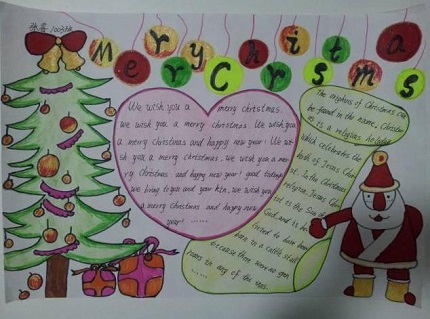 Merry Christmas
We wish you a merry christmas.
we wish you a merry christmas. We wish you
a merry christmas and happy new year! We wi-
sh you a merry christmas. we wish you a mer-
ry Christmas and happy new year! good tidings
we bring to you and your kin, we wish you
a merry christmas and happy new
year! ......
The origins of Christmas can
be found in the name. Christm
as is a religious holiday
which celebrates the
birth of Jesus Chri
st. In the Christmas
religion, Jesus Chri
st is the Son of
God and is
to have been
born in a cattle stall
because there were no
rooms in any of the inns.
......